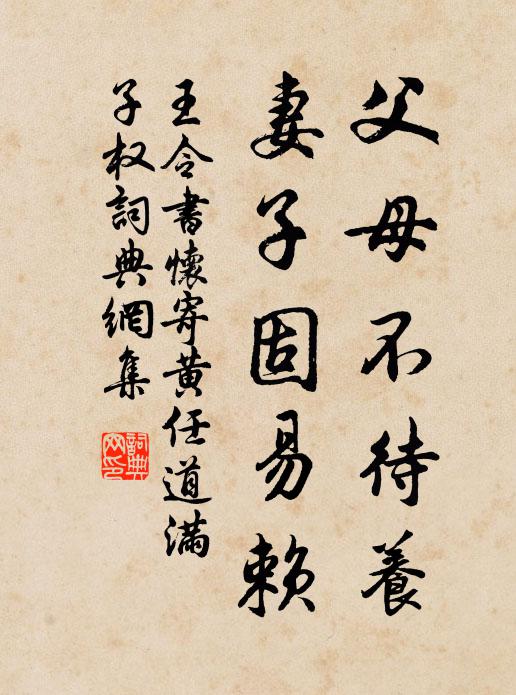 父母不待養
妻子固易賴
王令書懷寄黄任道滿
子权詞典網集
詞典网印